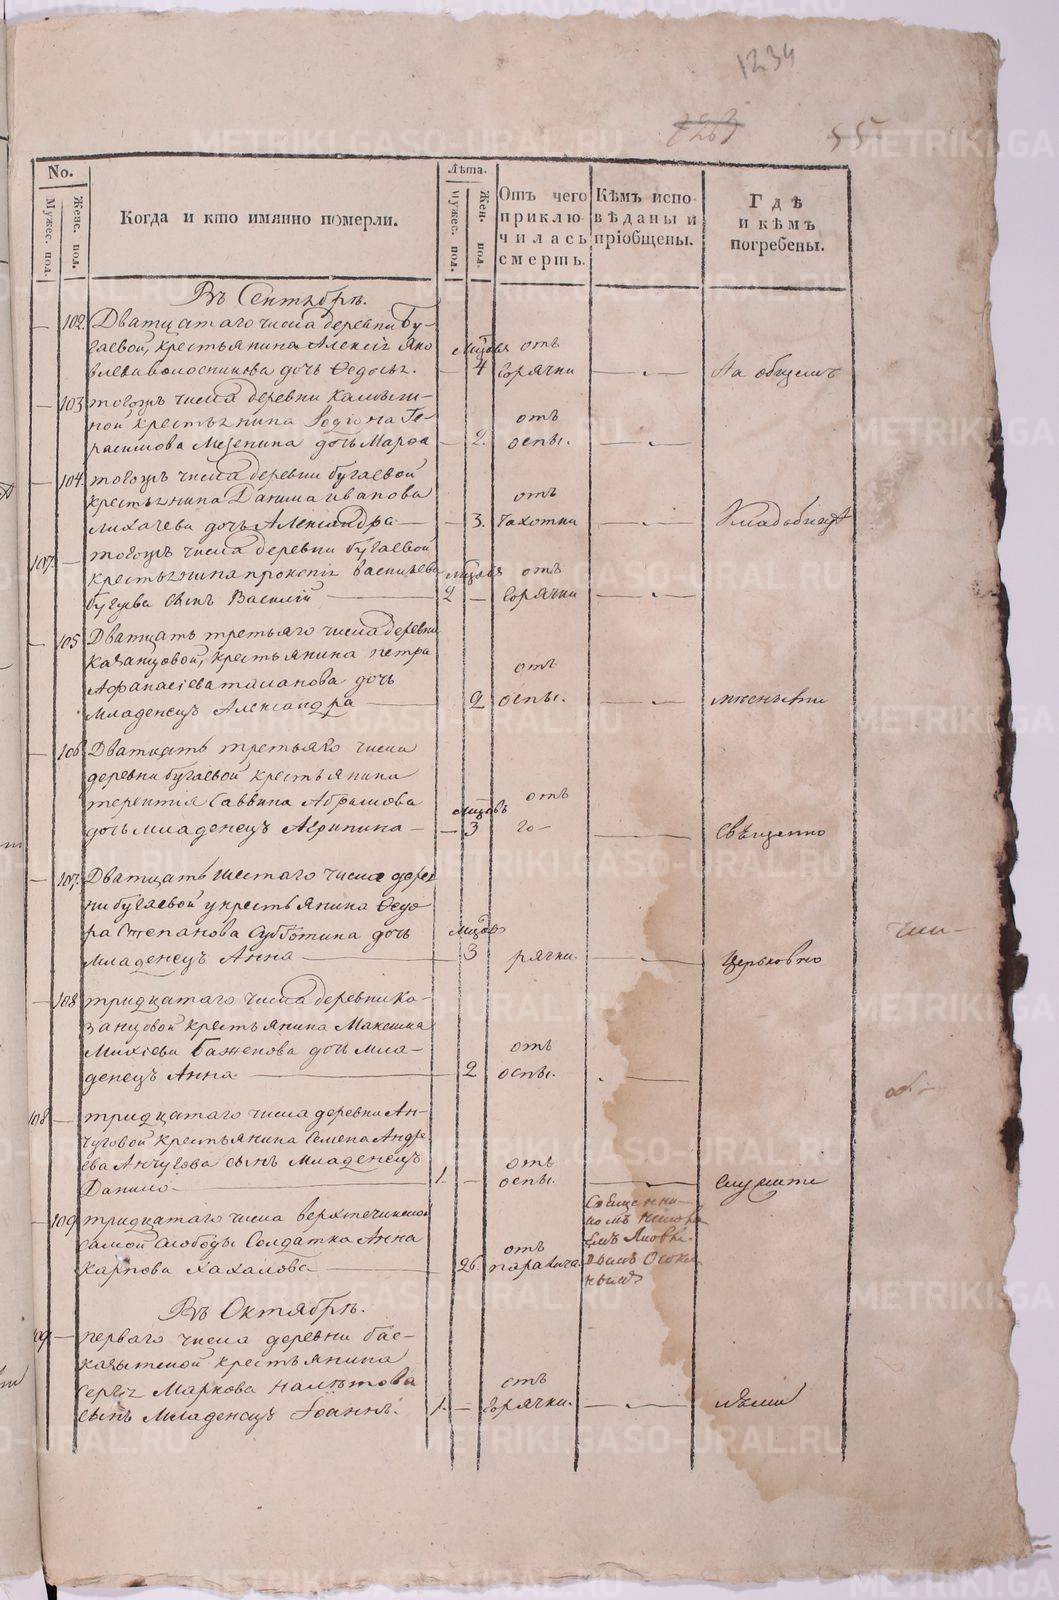 1234
55
No.
Мужес. пол.
Женс. пол.
Когда и кто имянно померли.
Лѣта.
Мужес. пол.
Жен. пол.
Отъ чего
приклю-
чилась
смерть.
Кѣмъ испо-
вѣданы и
пріобщены.
Гдѣ
и кѣмъ
погребены.
Въ Сентябрѣ.
— 102. Дватцатаго числа деревни Бу-
гаевой, крестьянина Алексія Яко
влева Колоспикова дочь Ѳедосья. — 4 отъ горячки — на общемъ
— 103 тогожъ числа деревни Камыш-
ной крестьянина Родіона Ге-
расимова Мезенина дочь Марѳа — 2. отъ оспы. —
— 104. тогожъ числа деревни бугаевой
крестьянина Данила иванова
лихачева дочь Александра — — 3. отъ чахотки — Кладбищѣ
107. — тогожъ числа деревни бугаевой
крестьянина прокопія васильева
бугуева сынъ Василій — 2 — отъ горячки —
— 105 Дватцать третьяго числа деревни
казанцовой, крестьянина петра
Афанасіева таланова дочь
Младенецъ Александра — 2 отъ оспы. — мѣстными
— 106 Дватцать третьяго числа
деревни бугаевой крестьянина
терентія Саввина Абрамова
дочь младенецъ Агрипина — — 3 отъ го- — Священно
— 107. Дватцать шестаго числа дерев
ни бугаевой у крестьянина Ѳедо-
ра Степанова Субботина дочь
младенецъ Анна — — 3 рячки. — Церковно
— 108 тридцатаго числа деревни ка-
занцовой крестьянина Максима
Михѣева Баженова дочь мла-
денецъ Анна — — 2 отъ оспы. —
108 — тридцатаго числа деревни Ан-
чуговой крестьянина Семена Андре
ева Анчугова сынъ Младенецъ
Данило — 1. — отъ оспы. — служите
— 109 тридцатаго числа верхтечинской
самой слободы Солдатка Анна
карпова Хахалова — 26. отъ паралича. Священни-
комъ
Яковле-
нымъ
Въ Октябрѣ.
109. — перваго числа деревни бас-
казытской крестьянина
Сергія Маркова налѣтова
сынъ Младенецъ Іоаннъ. 1. — отъ горячки. — лѣми